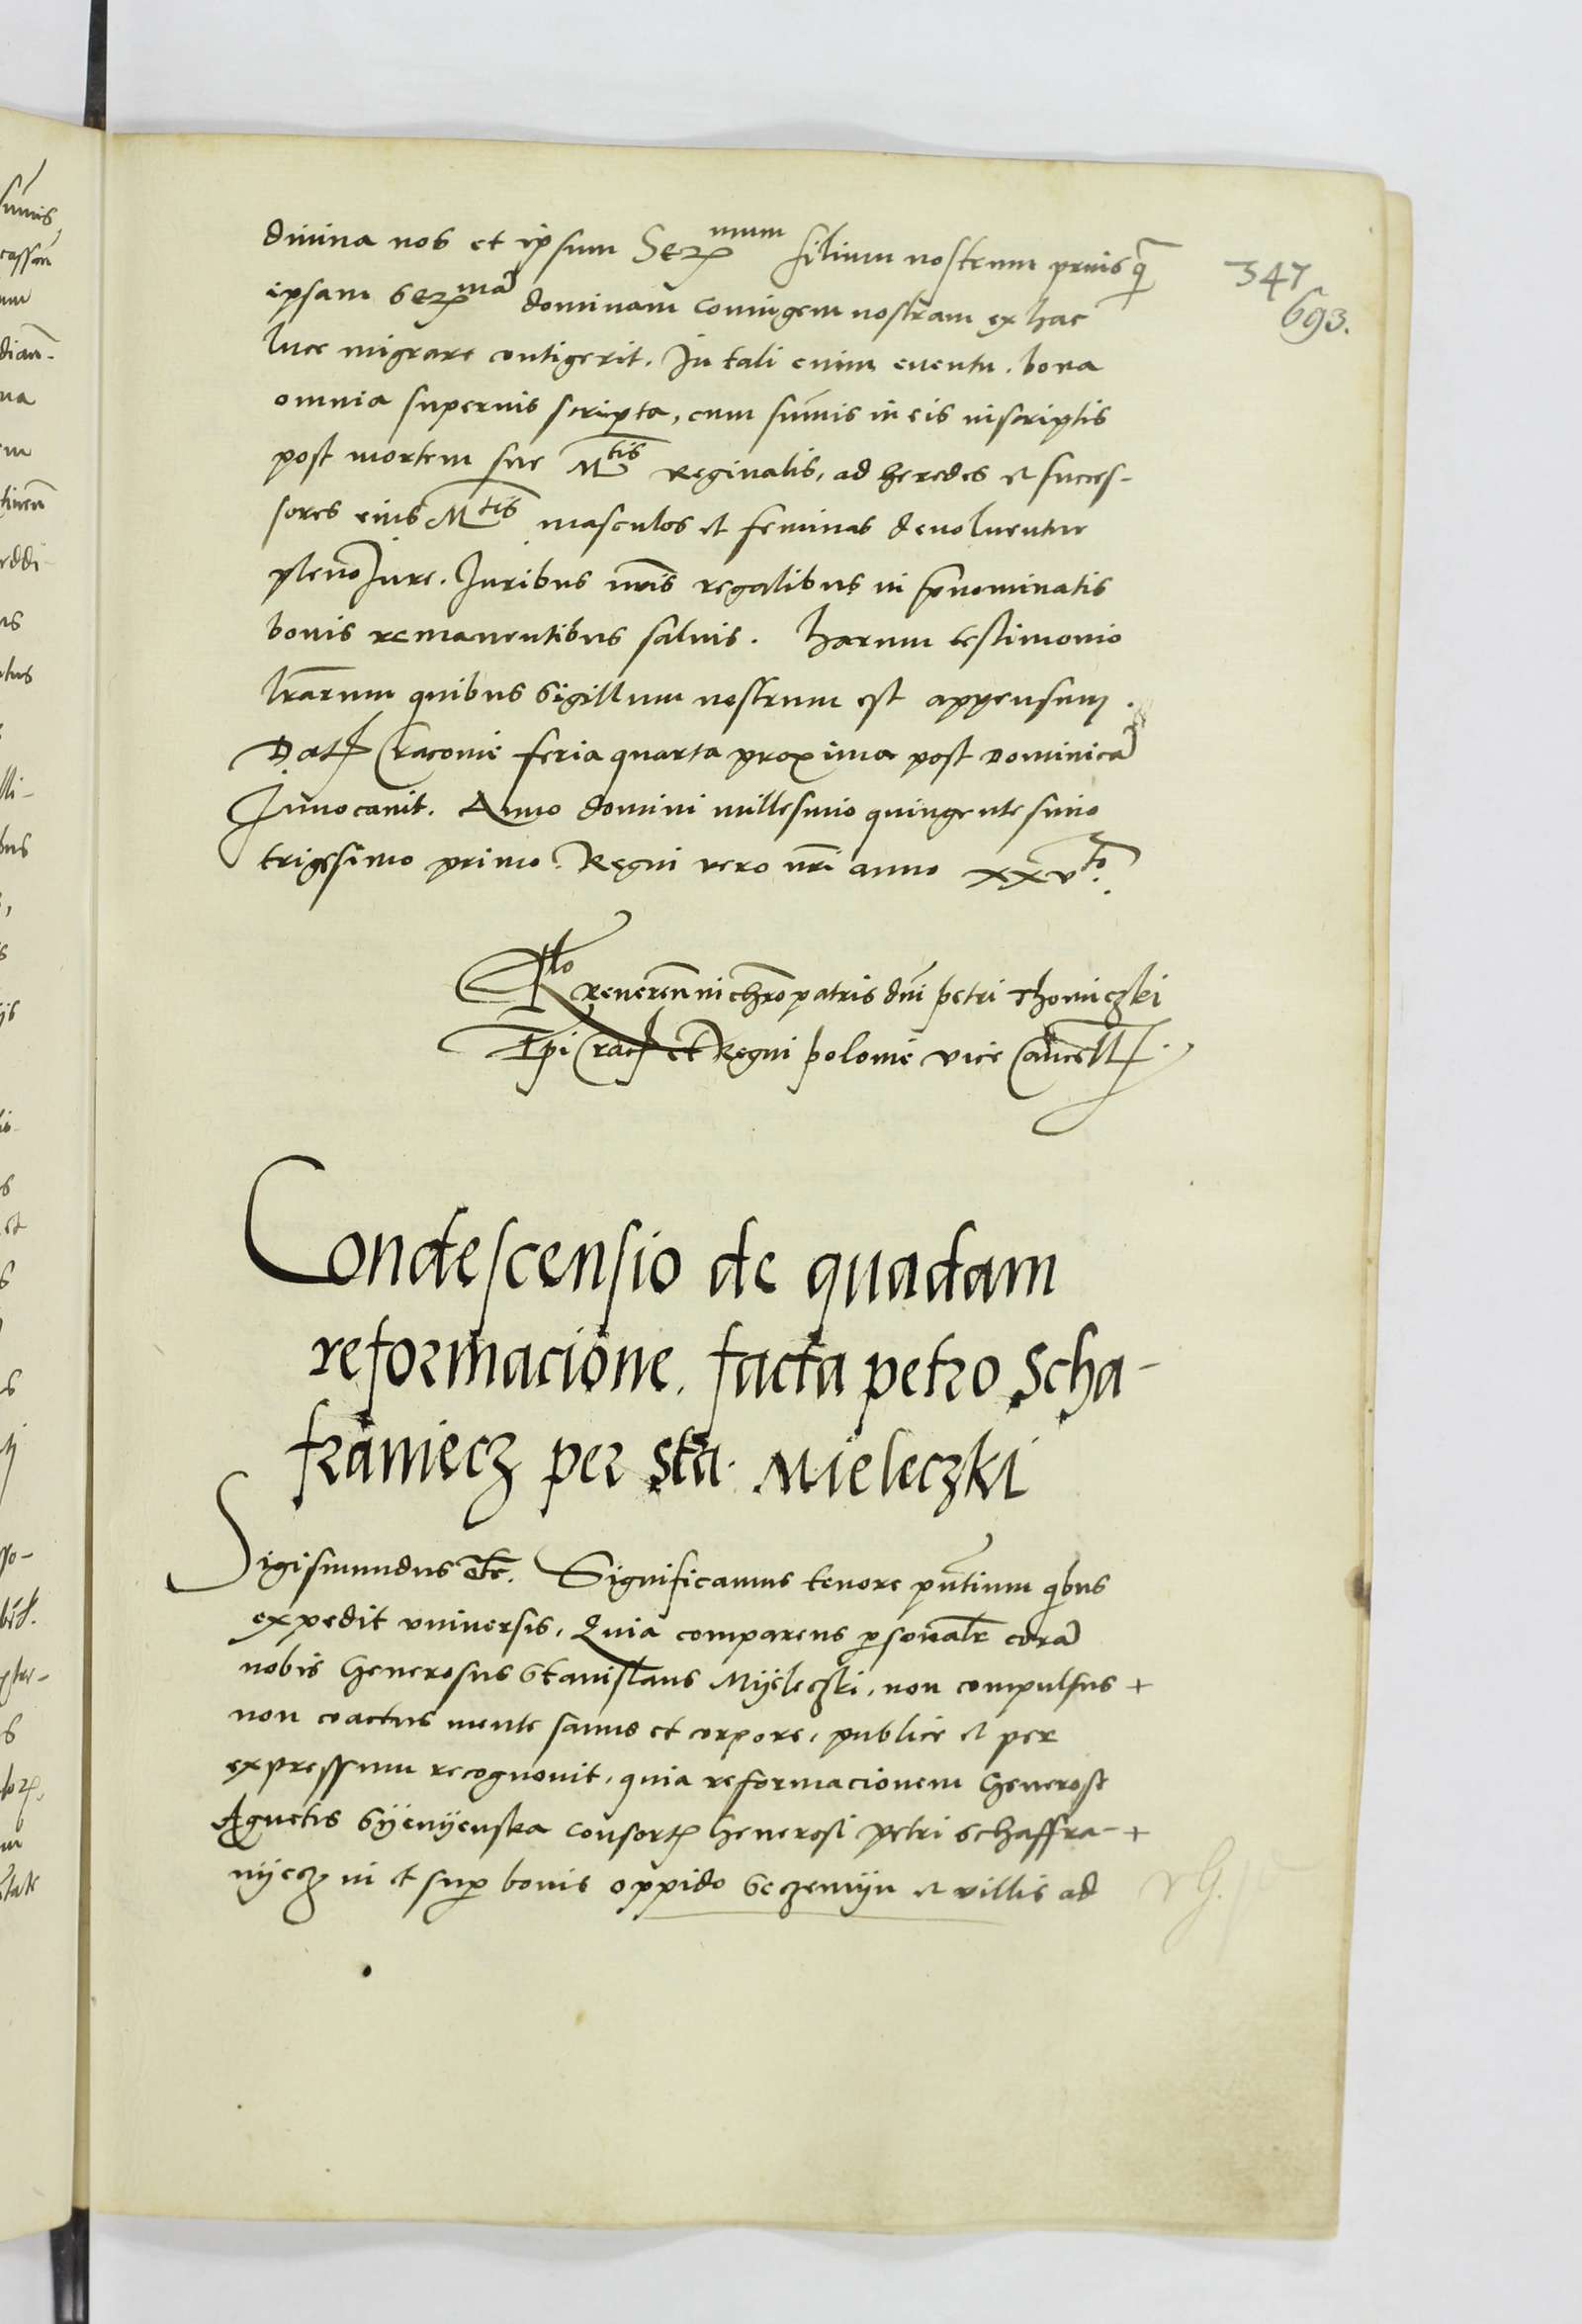 diuina nos et ipsum Serꝫ^mum filium nostrum priusq̃
ipsam Serꝫ^mã dominam coniugem nostram ex hac
luce migrare contigerit. In tali enim euentu. bona
omnia superius scripta, cum sum̃is in eis inscriptis
post mortem sue M^tis Reginalis, ad heredes et succes-
sores eius M^tis masculos et feminas deuoluentur
pleno Iure. Iuribus nr̃is regalibus in p̃nominatis
bonis remanentibus saluis. Harum testimonio
lr̃arum quibus Sigillum nostrum est appensum.
Datꝭ Cracouie feria quarta proxima post Dominicã
Inuocauit. Anno domini millesimo quingentesimo
trigesimo primo. Regni vero nr̃i anno xxv^to.
R^lo reueren̄ in chr̃o patris dn̄i petri Thomiczki
Ep̃i Cracꝭ et Regni polonie vice Cancellꝭ.
347
693.
Condescensio de quadam
reformacione. facta petro Scha-
franiecz per Sta. Mieleczki
Sigismundus etc̃. Significamus tenore pñtium qbus
expedit vniuersis, Quia comparens ꝑsonalr̃ corã
nobis Generosus Stanislaus Myeleczki, non compulsus +
non coactus mente sanus et corpore, publice et per
expressum recognouit, quia reformacionem Generose
Agnetis Syenyenska consortꝭ Generosi petri Schaffra- +
nyecz in et suꝑ bonis oppido Seczemyn et villis ad